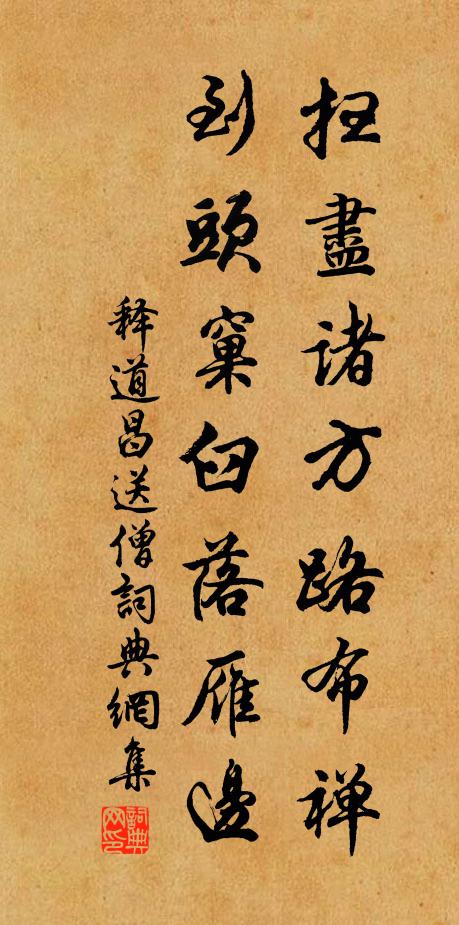 扫盡諸方路布禅
到頭窠臼落雁邊
释道昌送僧詞典網集
詞典网印